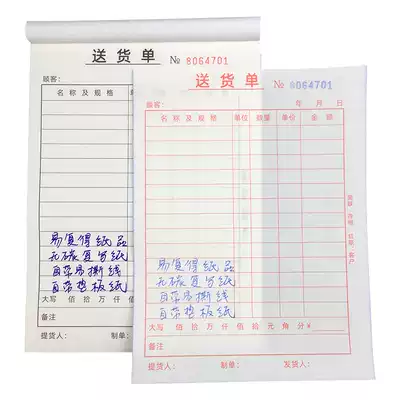 送货单 № 8064701
顾客：
名称及规格
易复得纸品
无碳复写纸
自带易撕线
自带垫板纸
大写 佰 拾 万 仟 佰
备注
提货人： 制单：
送货单 № 8064701
顾客： 年 月 日
名称及规格 单位 数量 单价 金额
易复得纸品
无碳复写纸
自带易撕线
自带垫板纸
大写 佰 拾 万 仟 佰 拾 元 角 分 ¥
备注
提货人： 制单： 发货人：